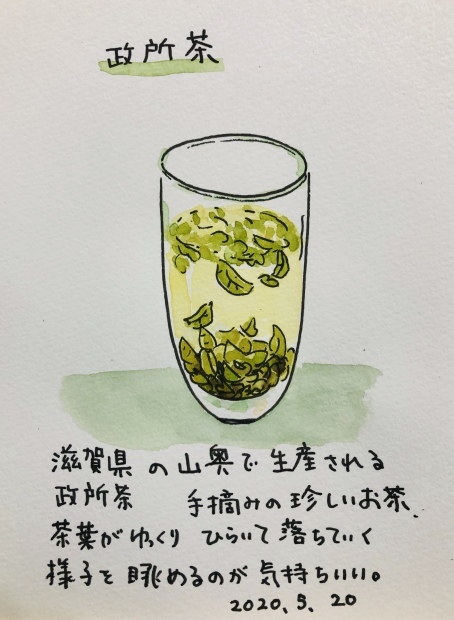 政所茶
滋賀県の山奥で生産される
政所茶 手摘みの珍しいお茶、
茶葉がゆっくりひらいて落ちていく
様子を眺めるのが気持ちいい。
2020.5.20